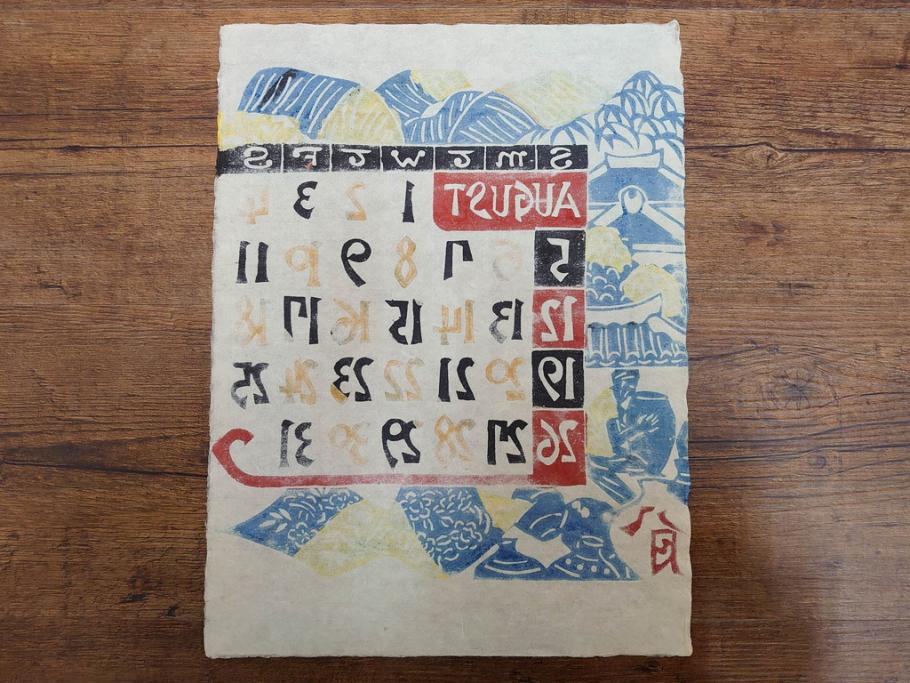 S M T W T F S
AUGUST 1 2 3 4
5 6 7 8 9 10 11
12 13 14 15 16 17 18
19 20 21 22 23 24 25
26 27 28 29 30 31
八月